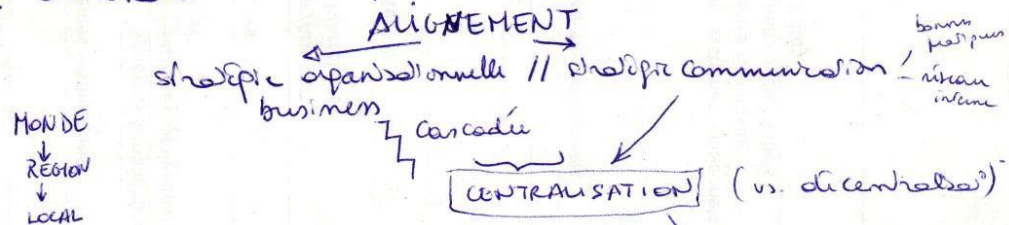 ALIGNEMENT
stratégie organisationnelle // stratégie communication
bonnes
pratiques
- réseau
interne
business
Cascadée
MONDE
↓
RÉGION
↓
LOCAL
CENTRALISATION (vs. décentralisa°)